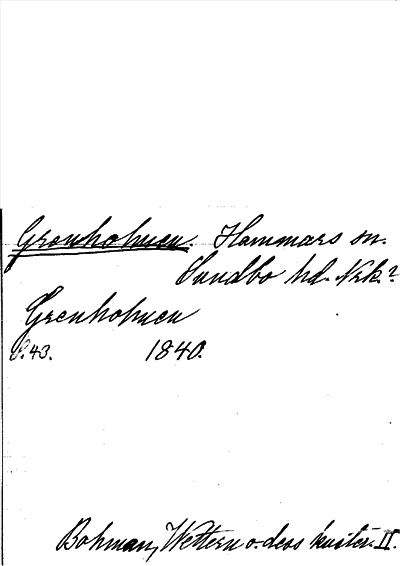 Grenholmen. Hammars sn.
Sundbo hd. Nrk.?
Grenholmen
S.43. 1840.
Bohman, Wettern o. dess kuster. II.